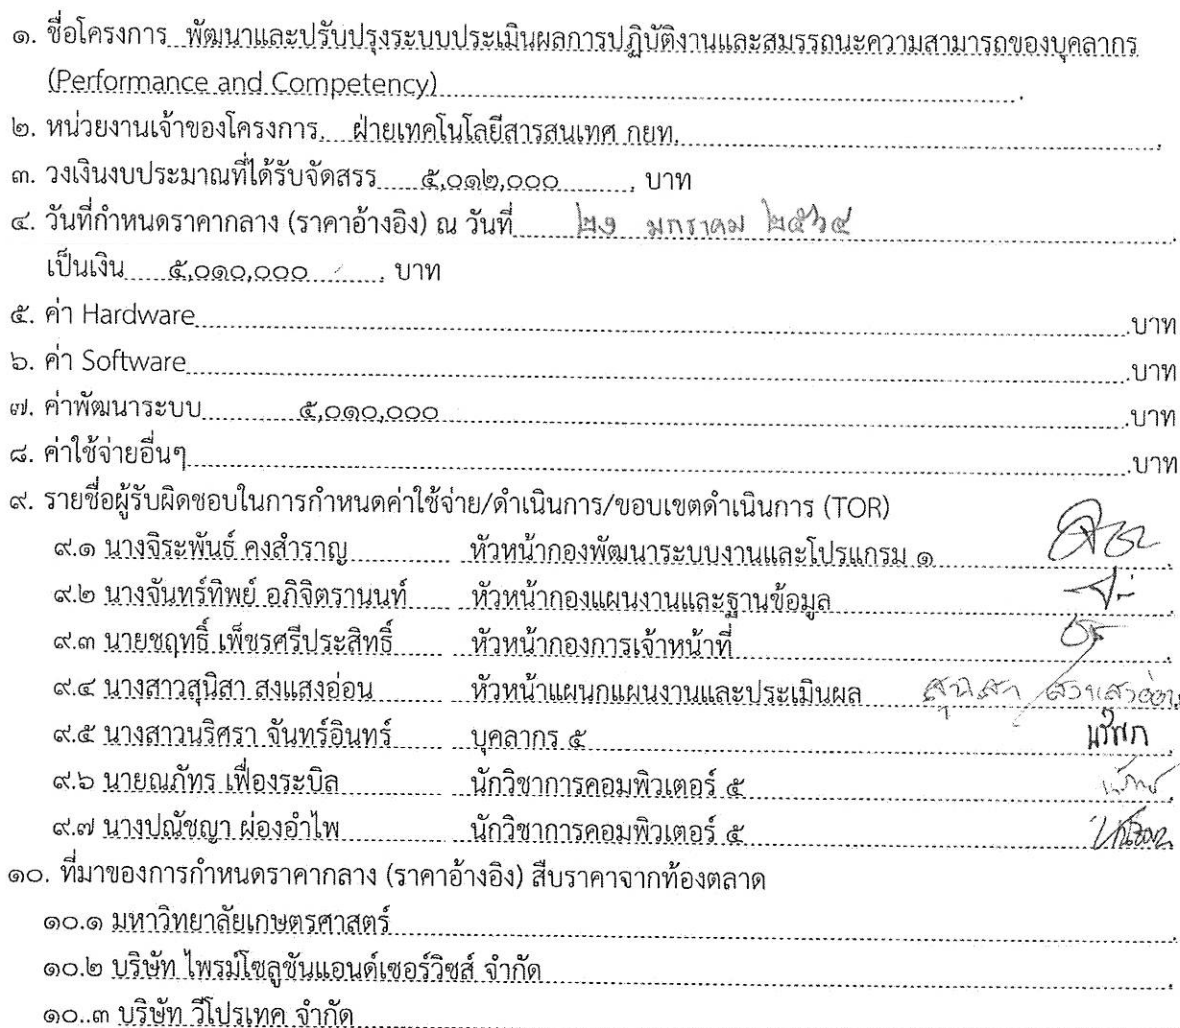 ๑. ชื่อโครงการ พัฒนาและปรับปรุงระบบประเมินผลการปฏิบัติงานและสมรรถนะความสามารถของบุคลากร
(Performance and Competency)
๒. หน่วยงานเจ้าของโครงการ ฝ่ายเทคโนโลยีสารสนเทศ กยท.
๓. วงเงินงบประมาณที่ได้รับจัดสรร ๕,๐๑๒,๐๐๐ บาท
๔. วันที่กำหนดราคากลาง (ราคาอ้างอิง) ณ วันที่ มกราคม ๒๕๖๔
เป็นเงิน ๕,๐๑๐,๐๐๐ บาท
๕. ค่า Hardware บาท
๖. ค่า Software บาท
๗. ค่าพัฒนาระบบ ๕,๐๑๐,๐๐๐ บาท
๘. ค่าใช้จ่ายอื่นๆ บาท
๙. รายชื่อผู้รับผิดชอบในการกำหนดค่าใช้จ่าย/ดำเนินการ/ขอบเขตดำเนินการ (TOR)
๙.๑ นางจิระพันธ์ คงสำราญ หัวหน้ากองพัฒนาระบบงานและโปรแกรม ๑
๙.๒ นางจันทร์ทิพย์ อภิจิตรานนท์ หัวหน้ากองแผนงานและฐานข้อมูล
๙.๓ นายชฤทธิ์ เพ็ชรศรีประสิทธิ์ หัวหน้ากองการเจ้าหน้าที่
๙.๔ นางสาวสุนิสา สงแสงอ่อน หัวหน้าแผนกแผนงานและประเมินผล สุนิสา สงแสงอ่อน
๙.๕ นางสาวนริศรา จันทร์อินทร์ บุคลากร ๕
๙.๖ นายณภัทร เฟื่องระบิล นักวิชาการคอมพิวเตอร์ ๕
๙.๗ นางปณัชญา ผ่องอำไพ นักวิชาการคอมพิวเตอร์ ๕
๑๐. ที่มาของการกำหนดราคากลาง (ราคาอ้างอิง) สืบราคาจากท้องตลาด
๑๐.๑ มหาวิทยาลัยเกษตรศาสตร์
๑๐.๒ บริษัท ไพรม์โซลูชันแอนด์เซอร์วิชส์ จำกัด
๑๐..๓ บริษัท วีโปรเทค จำกัด